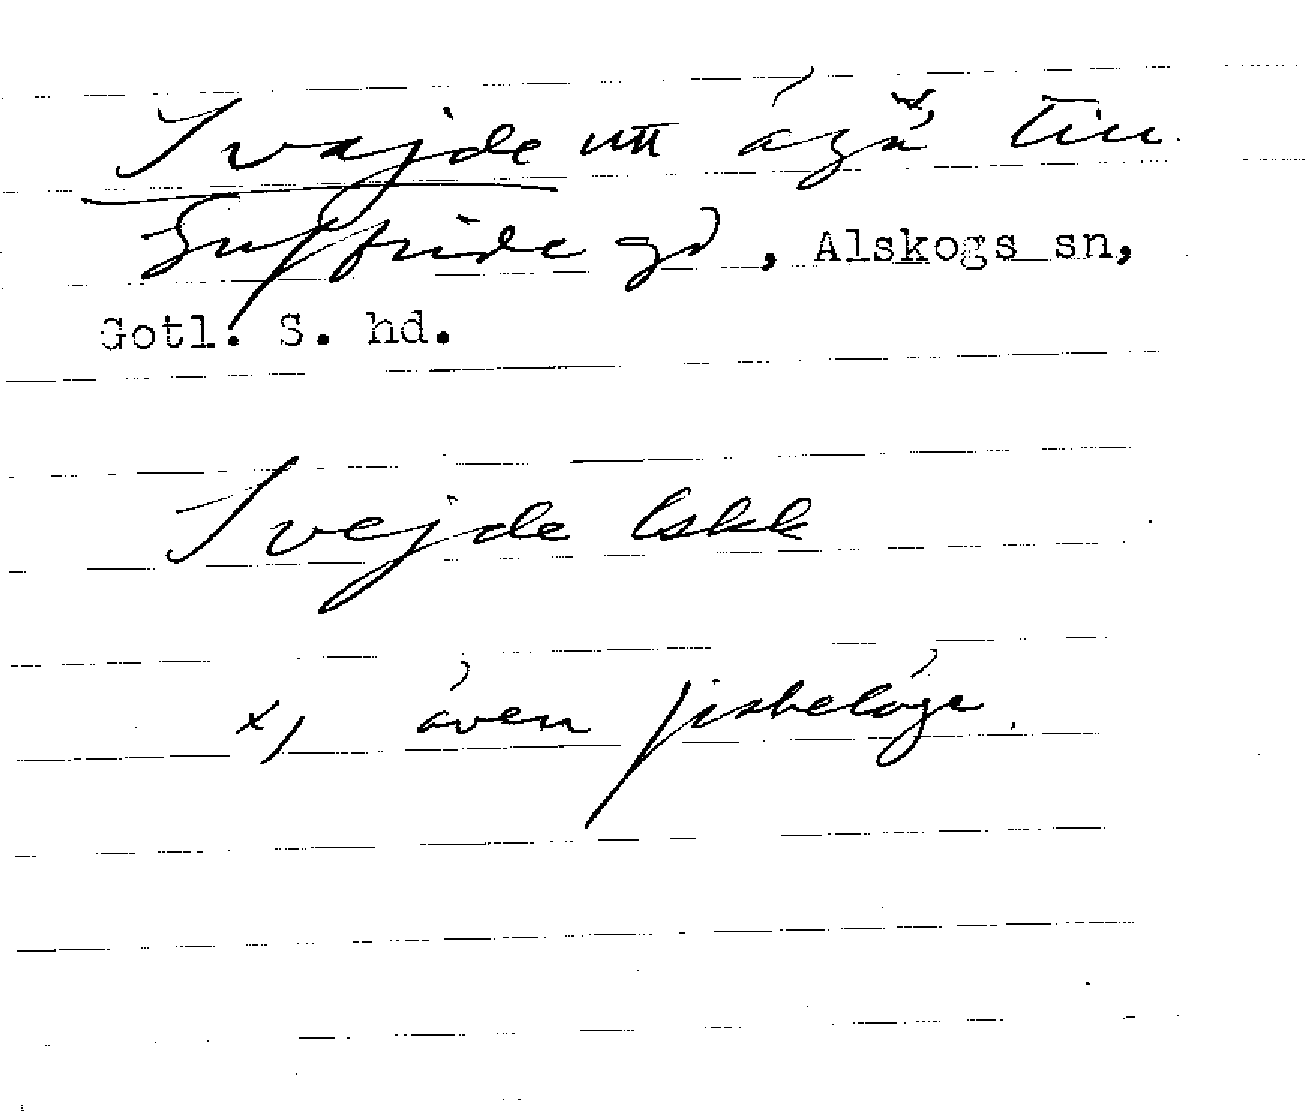 Svajde utt ägŏ till
Guffride gd, Alskogs sn,
Gotl. S. hd.
Svejde lskk
x) även fiskeläge.